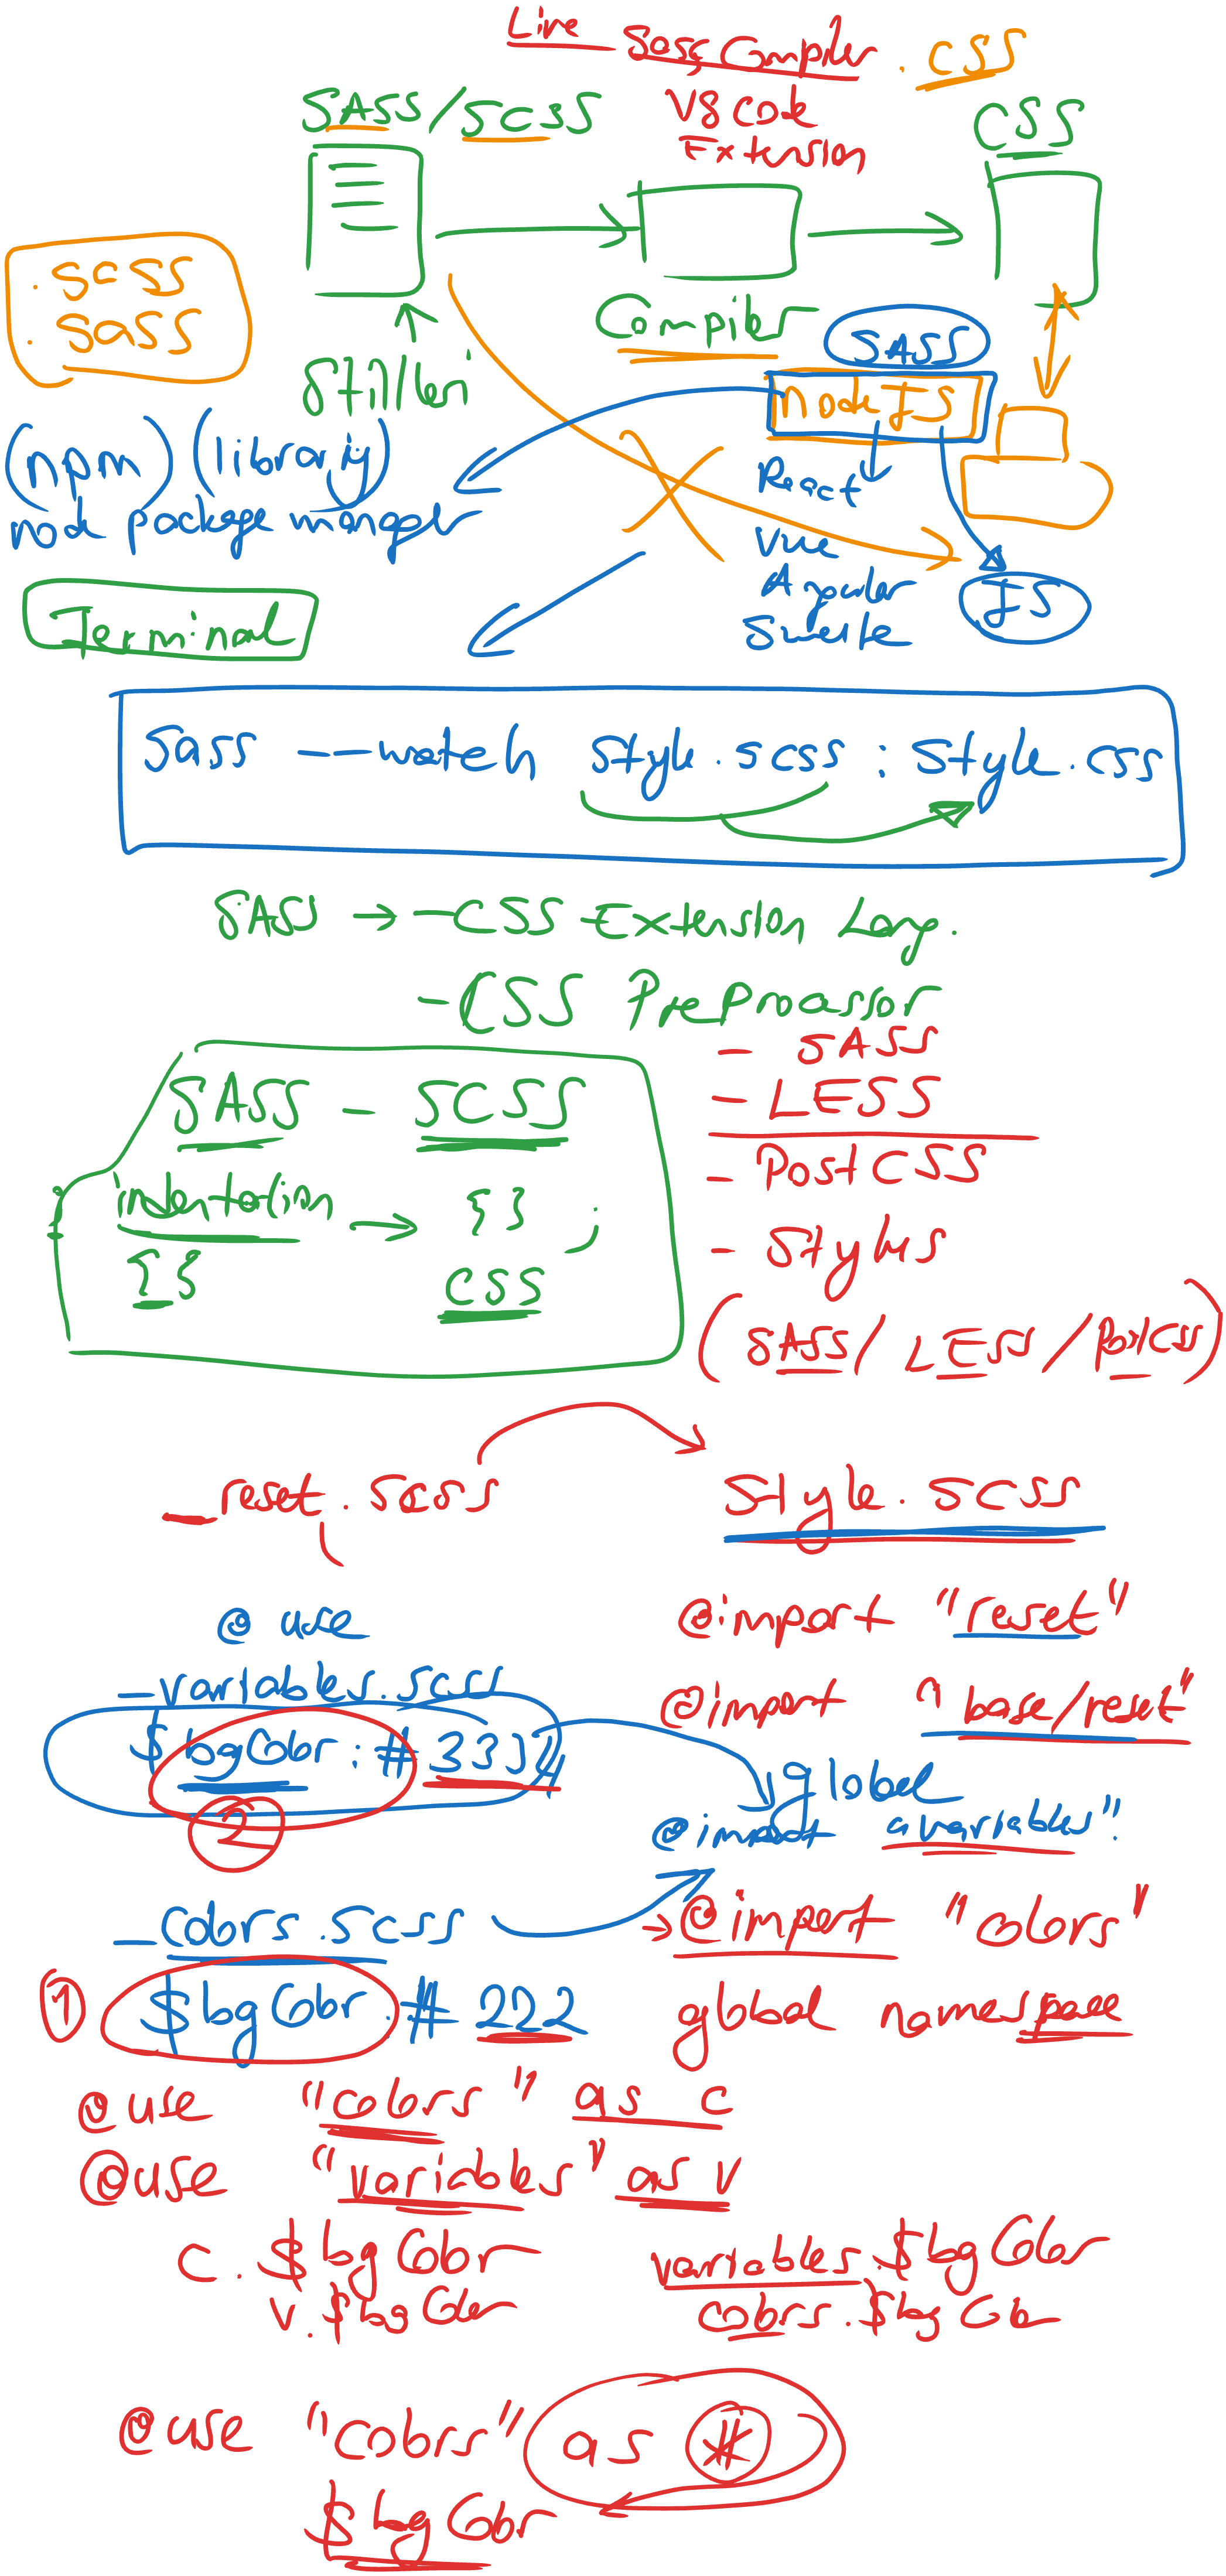 Live Sass Compiler
VS Code
Extension
.css
SASS/SCSS
CSS
.scss
.sass
Compiler
SASS
NodeJS
(npm) (library)
node package manager
React
Vue
Angular
Svelte
JS
Terminal
Sass --watch Style.scss : Style.css
SASS → -CSS Extension Lang.
-CSS PreProcessor
- SASS
- LESS
- PostCSS
- Stylus
(SASS / LESS / PostCSS)
SASS - SCSS
indentation → { } ;
{ }
CSS
_reset.scss
Style.scss
@import "reset"
@import "base/reset"
@use
_variables.scss
$bgColor: #333
2
global
@import "variables".
_colors.scss
→ @import "colors"
1 $bgColor: #222
global namespace
@use "colors" as c
@use "variables" as v
c.$bgColor
v.$bgColor
variables.$bgColor
colors.$bgColor
@use "colors" as *
$bgColor